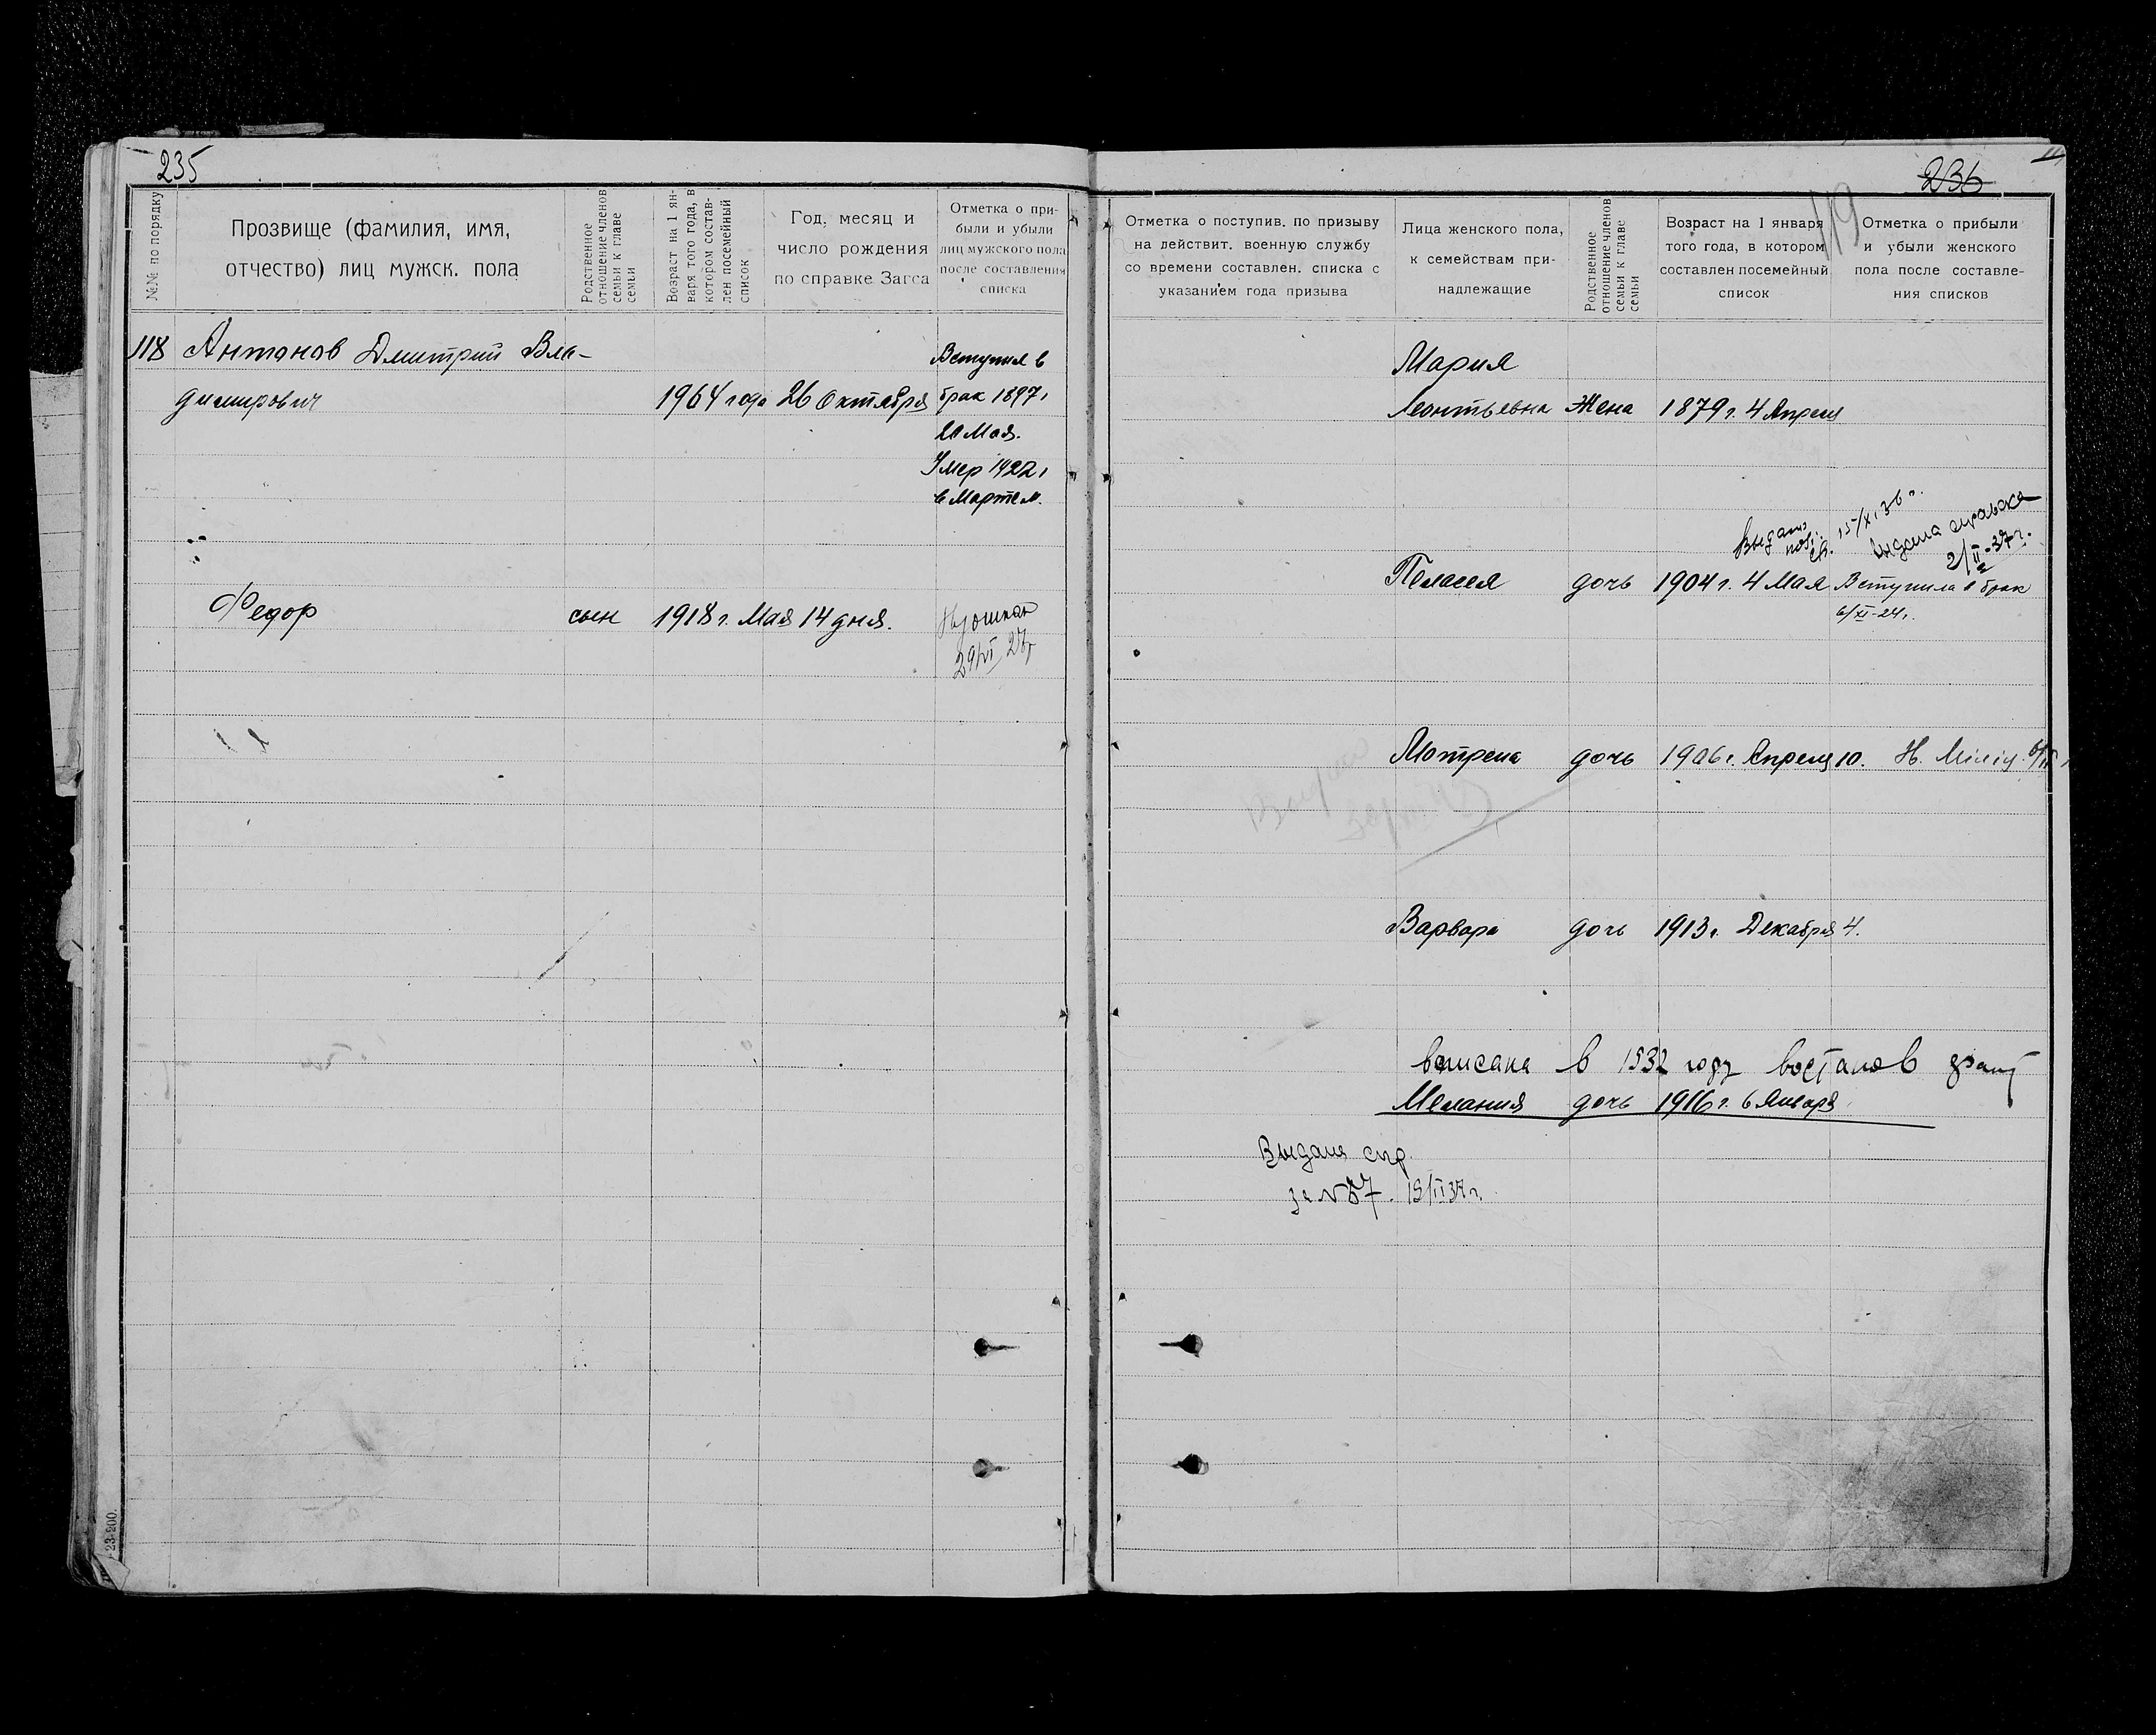 235
№№ по порядку
Прозвище (фамилия, имя,
отчество) лиц мужск. пола
Родственное
отношение членов
семьи к главе
семьи
Возраст на 1 ян-
варя того года, в
котором состав-
лен посемейный
список
Год, месяц и
число рождения
по справке Загса
Отметка о при-
были и убыли
лиц мужского пола
после составления
списка
118 Антонов Дмитрий Вла-
димирович 1964 года 26 Октября
Вступил в
брак 1897г
20 Мая.
Умер 1922г
в Марте м.
Федор сын 1918 г. Мая 14 дня.
29/VI 27г
23-200.
236
119
Отметка о поступив. по призыву
на действит. военную службу
со времени составлен. списка с
указанием года призыва
Лица женского пола,
к семействам при-
надлежащие
Родственное
отношение членов
семьи к главе
семьи
Возраст на 1 января
того года, в котором
составлен посемейный
список
Отметка о прибыли
и убыли женского
пола после составле-
ния списков
Мария
Леонтьевна Жена 1879 г. 4 Апреля
Выдано
15/XI 36 г.
выдана справка
2/II-37 г.
Пелагея дочь 1904 г. 4 Мая Вступила в брак
6/XI-24г.
Мотрена дочь 1906 г. Апреля 10. Н.
Варвара дочь 1913 г. Декабря 4.
вписана в 1932 году востанов
Мелания дочь 1916 г. 6 Января
Выдана спр.
за №87. 15/II 37 г.